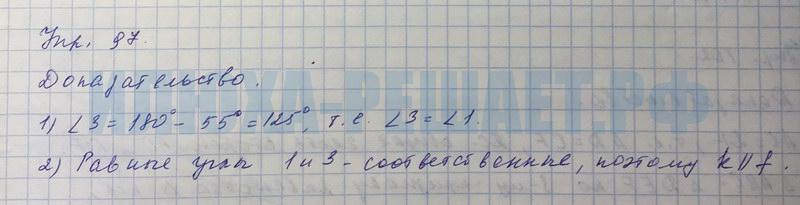 Упр. 97.
Доказательство.
1) ∠3 = 180° - 55° = 125°, т.е. ∠3 = ∠1.
2) Равные углы 1 и 3 - соответственные, поэтому k || f.